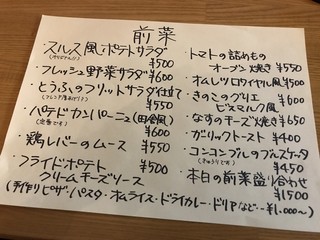 前菜
・スルス風ポテトサラダ
¥500
・フレッシュ野菜サラダ ¥600
・とうふのフリットサラダ仕立て
¥550
・パテドカンパーニュ(田舎風)
(定番です) ¥600
・鶏レバーのムース ¥550
・フライドポテト ¥500
クリームチーズソース
(手作りピザ・パスタ・オムライス・ドライカレー・ドリアなど…¥1,000〜)
・トマトの詰めもの
オーブン焼き ¥550
・オムレツ ロワイヤル風 ¥500
・きのこのグリエ
ビスマルク風 ¥600
・なすのチーズ焼き ¥650
・ガーリックトースト ¥400
・コンコンブルのブルスケッタ
(きゅうりです) ¥450
・本日の前菜盛り合わせ
¥1500